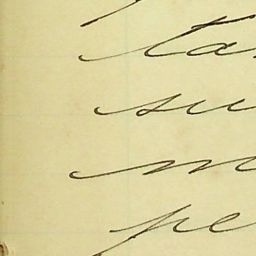 ta
su
m
pe